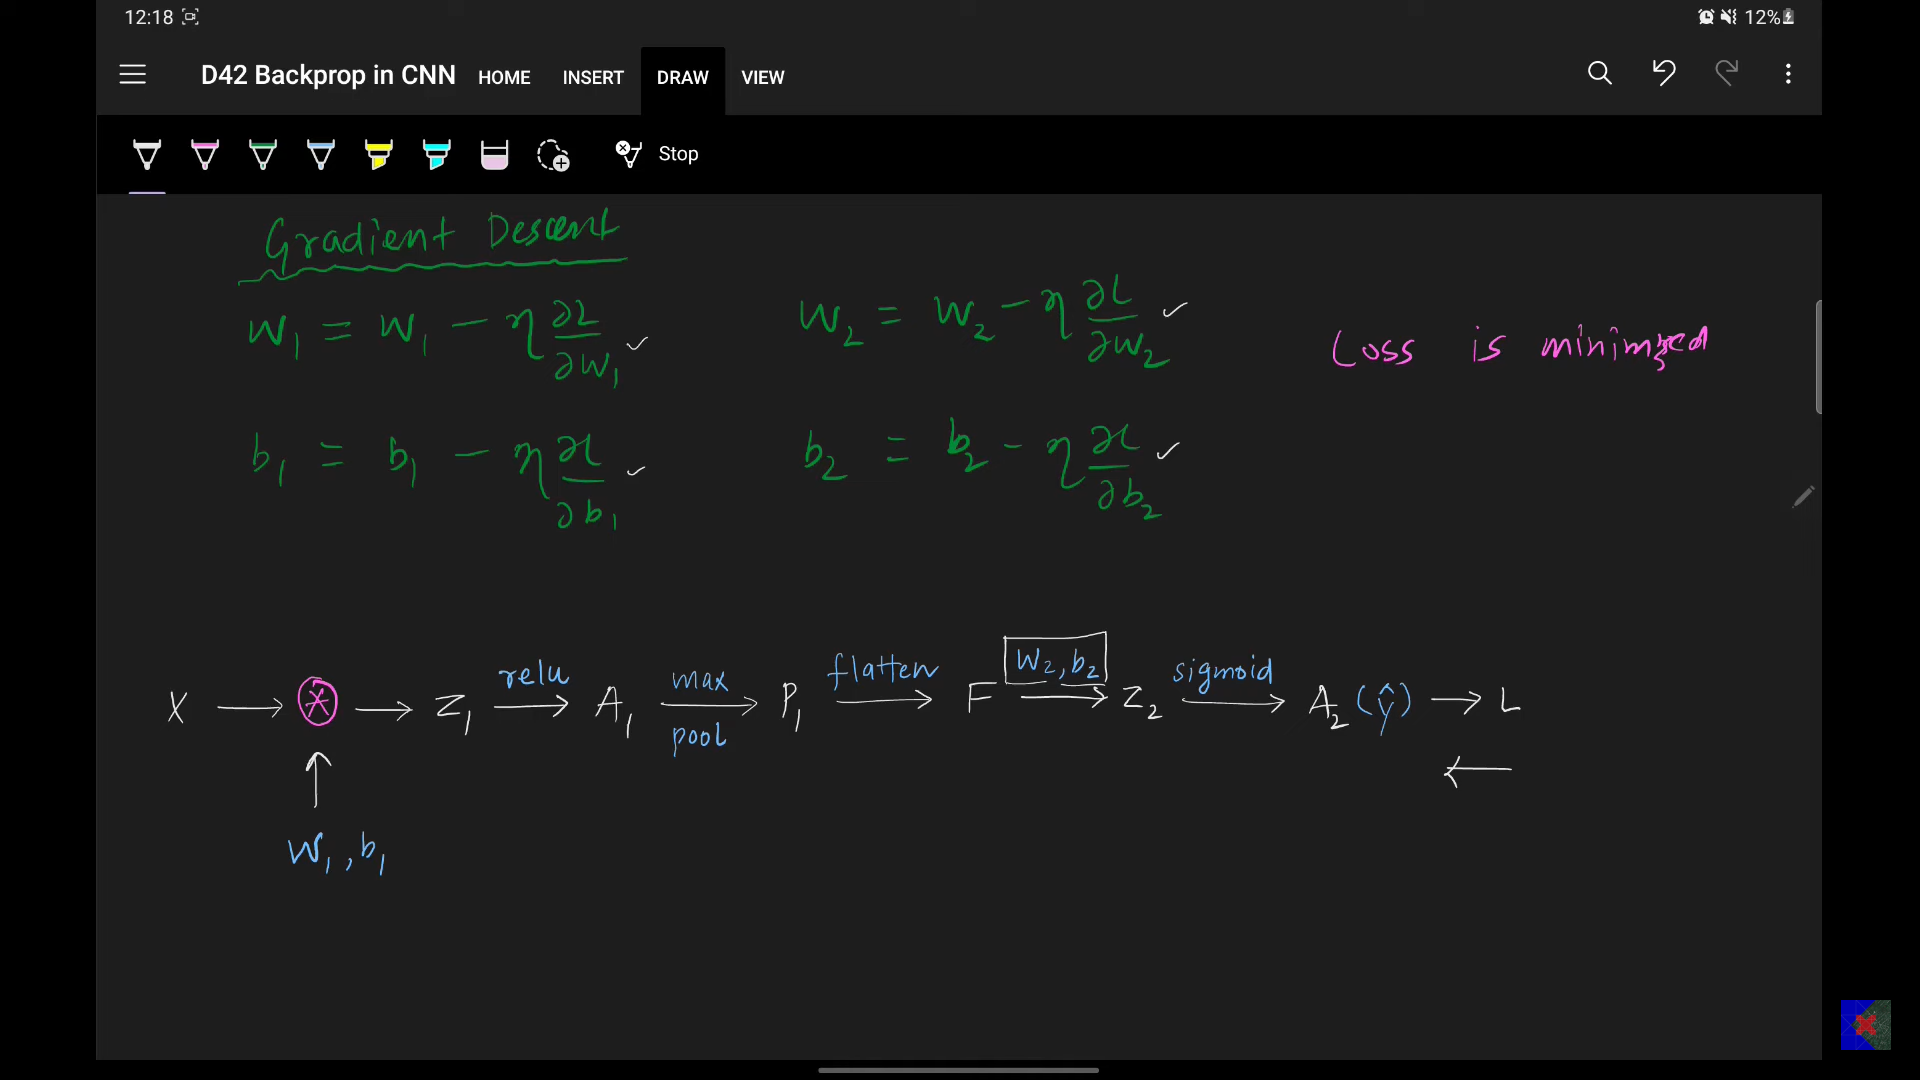 12:18 12%
D42 Backprop in CNN HOME INSERT DRAW VIEW
Stop
Gradient Descent
W₁ = W₁ − η ∂L/∂W₁ ✓ W₂ = W₂ − η ∂L/∂W₂ ✓
Loss is minimized
b₁ = b₁ − η ∂L/∂b₁ ✓ b₂ = b₂ − η ∂L/∂b₂ ✓
X → * → Z₁ relu → A₁ max pool → P₁ flatten → F W₂, b₂ → Z₂ sigmoid → A₂ (ŷ) → L
←
↑
W₁, b₁